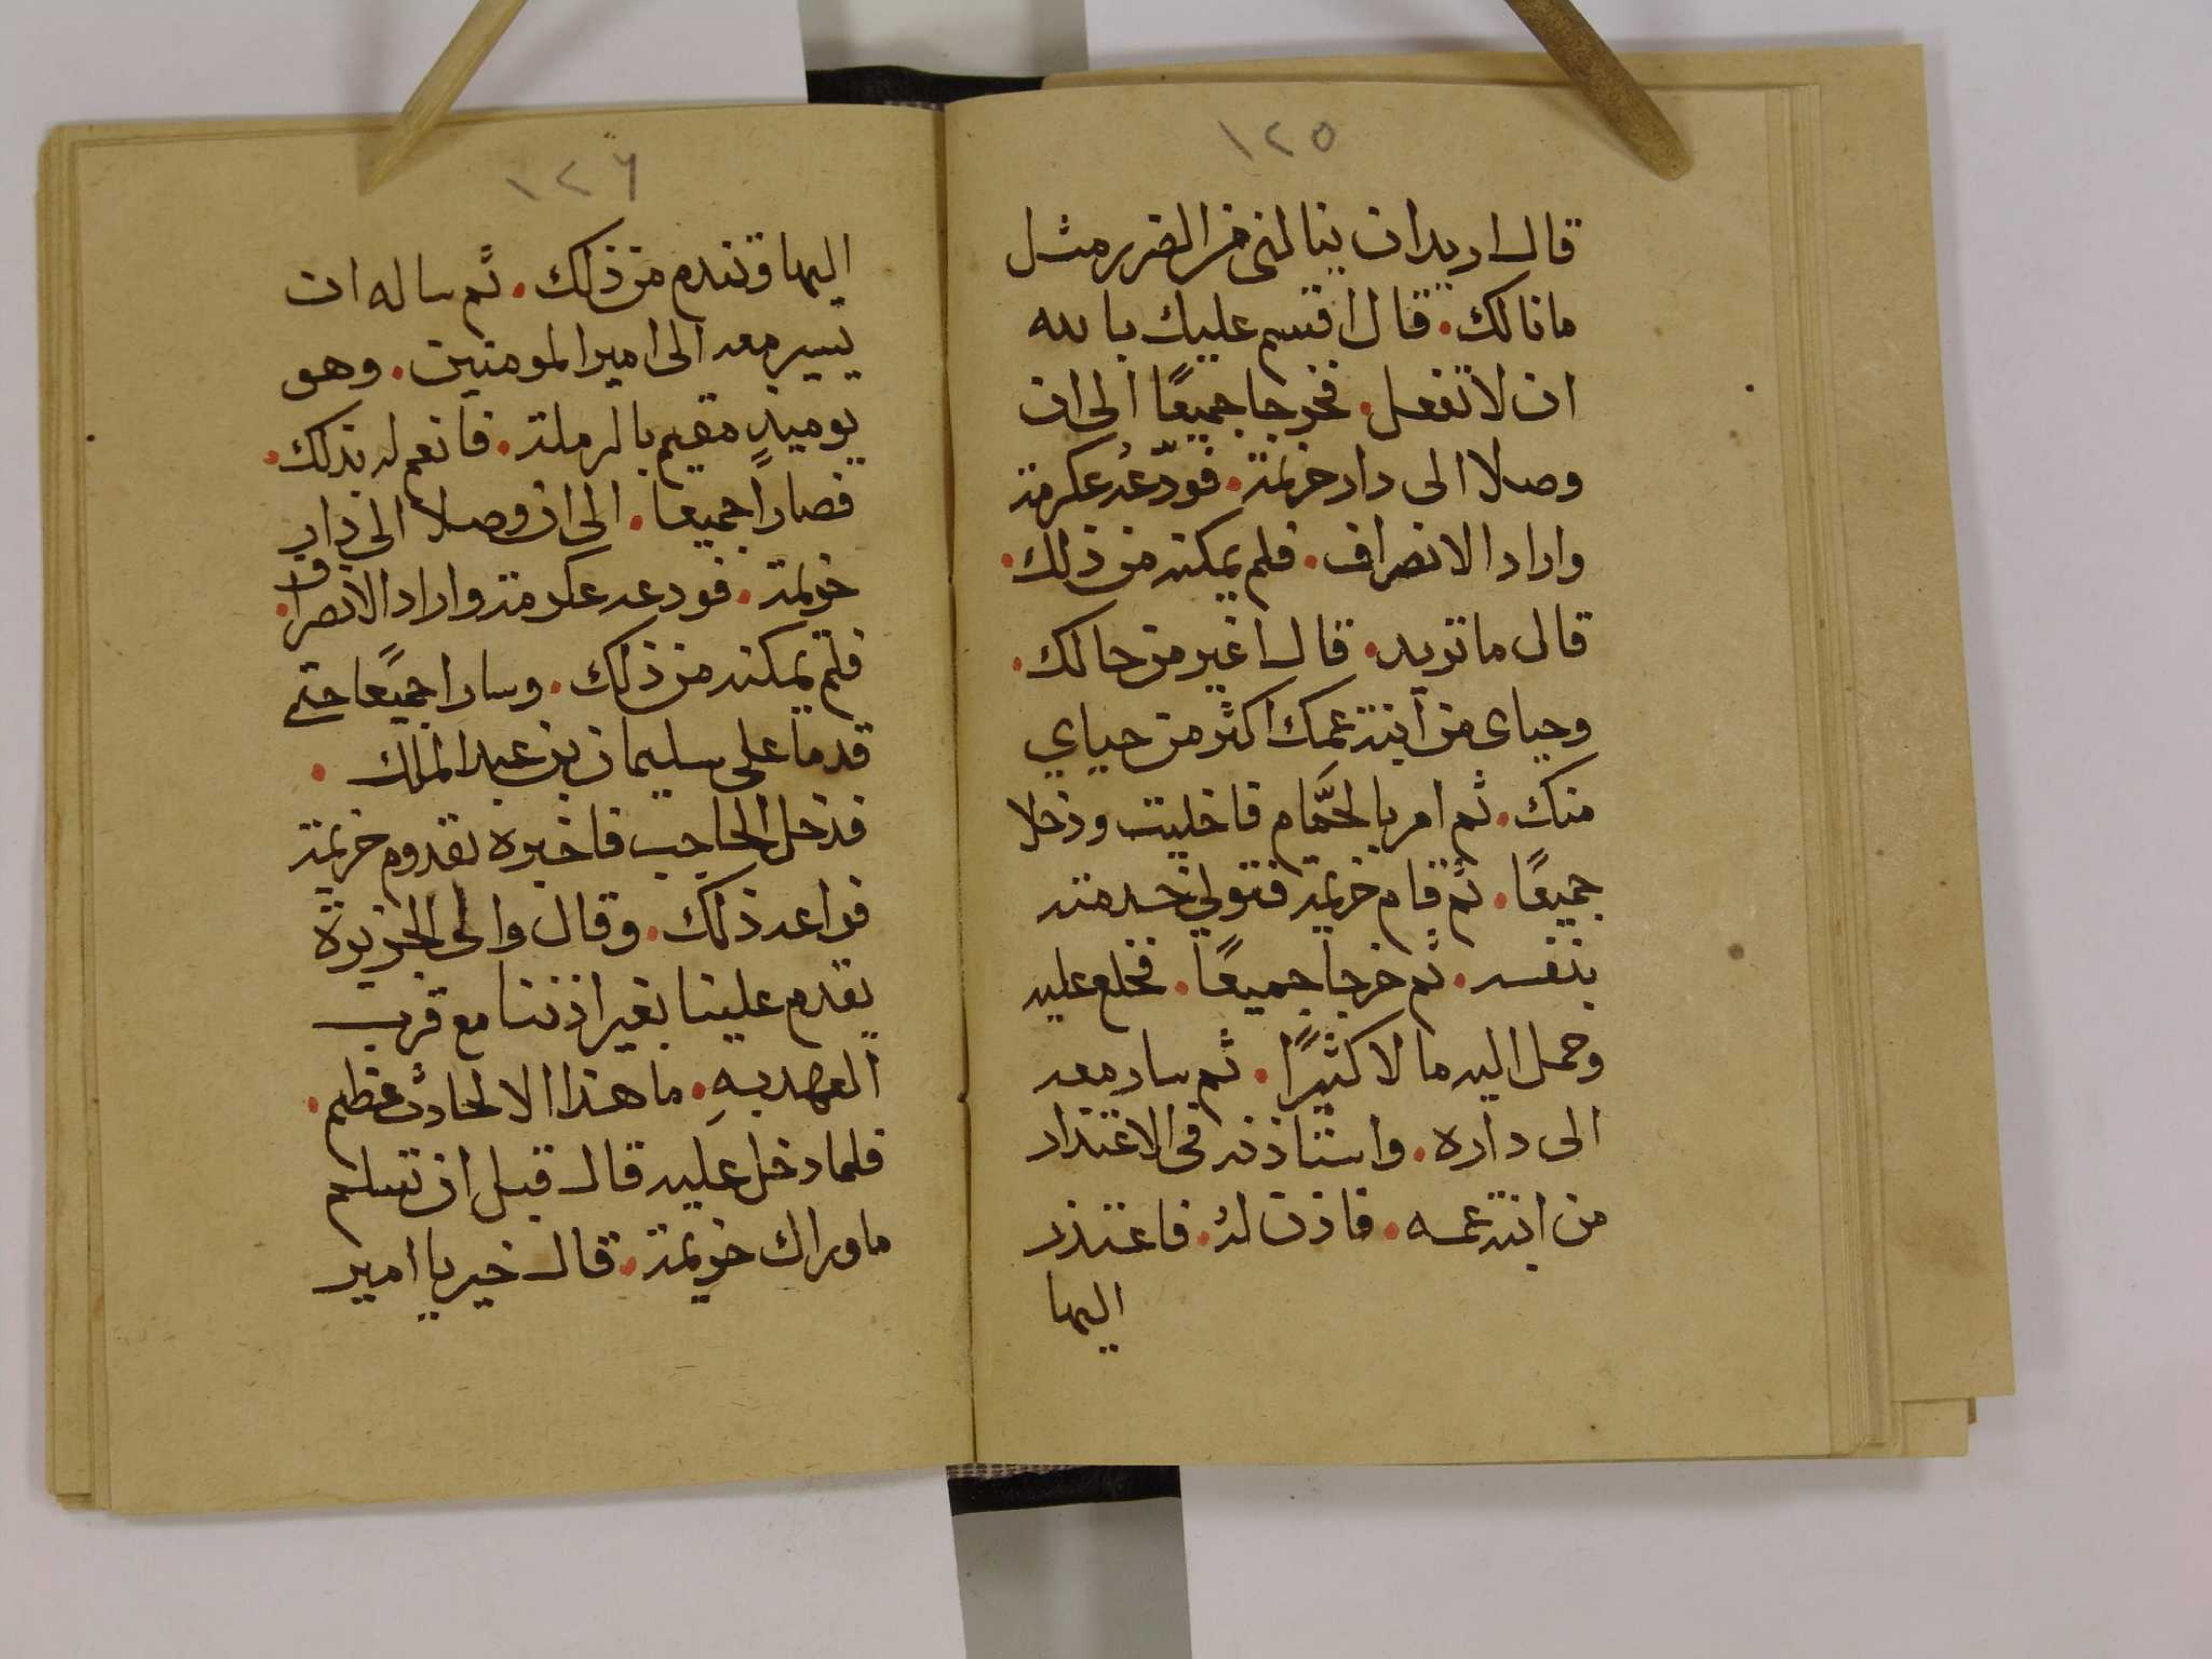 ١٢٥
قال اريد ان ينالني من الضرر مثل
ما نالك. قال اقسم عليك بالله
ان لا تفعل. فخرجا جميعًا الى ان
وصلا الى دار خزيمة. فودّعهُ عكرمة
واراد الانصراف. فلم يمكنه من ذلك.
قال ما تريد. قال اغير من حالك.
وحياى من ابنة عمك اكثر من حياي
منك. ثم امر بالحمَّام فاخليت ودخلا
جميعًا. ثم قام خزيمة فتولى خدمته
بنفسه. ثم خرجا جميعًا. فخلع عليه
وحمل اليه مالا كثيرًا. ثم سار معه
الى داره. واستاذنه في الاعتذار
من ابنة عمه. فاذن لهُ. فاعتذر
اليها
١٢٦
اليها وتندم من ذلك. ثم ساله ان
يسير معه الى امير المومنين. وهو
يوميذٍ مقيم بالرملة. فانعم له بذلك.
فصارا جميعاً. الى ان وصلا الى دار
خزيمة. فودعه عكرمة واراد الانصراف.
فلم يمكنه من ذلك. وسارا جميعًا حتى
قدما على سليمان بن عبد الملك.
فدخل الحاجب فاخبره بقدوم خزيمة
فراعه ذلك. وقال والى الجزيرة
يقدم علينا بغير اذننا مع قرب
العهد بهِ. ما هذا الا لحادث عظيم.
فلما دخل عليه قال قبل ان تسلم
ما وراك خزيمة. قال خير يا امير